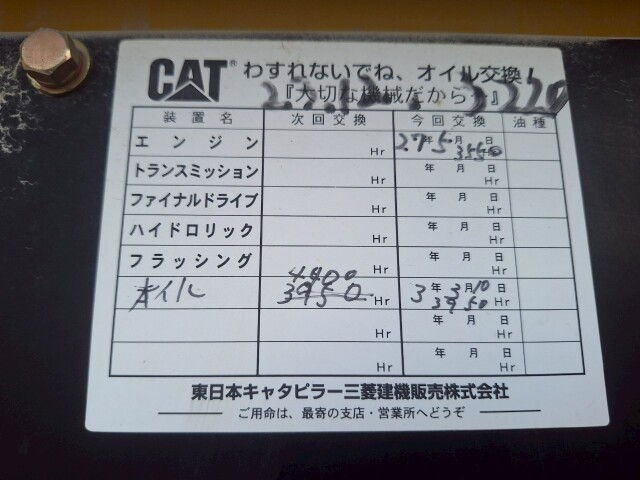 CAT® わすれないでね、オイル交換!
『大切な機械だから』
装置名 次回交換 今回交換 油種
エンジン Hr 27年5月 日 3550 Hr
トランスミッション Hr 年 月 日 Hr
ファイナルドライブ Hr 年 月 日 Hr
ハイドロリック Hr 年 月 日 Hr
フラッシング Hr 年 月 日 Hr
オイル 4400 3950 Hr 3年3月10日 3950 Hr
Hr 年 月 日 Hr
Hr 年 月 日 Hr
東日本キャタピラー三菱建機販売株式会社
ご用命は、最寄の支店・営業所へどうぞ